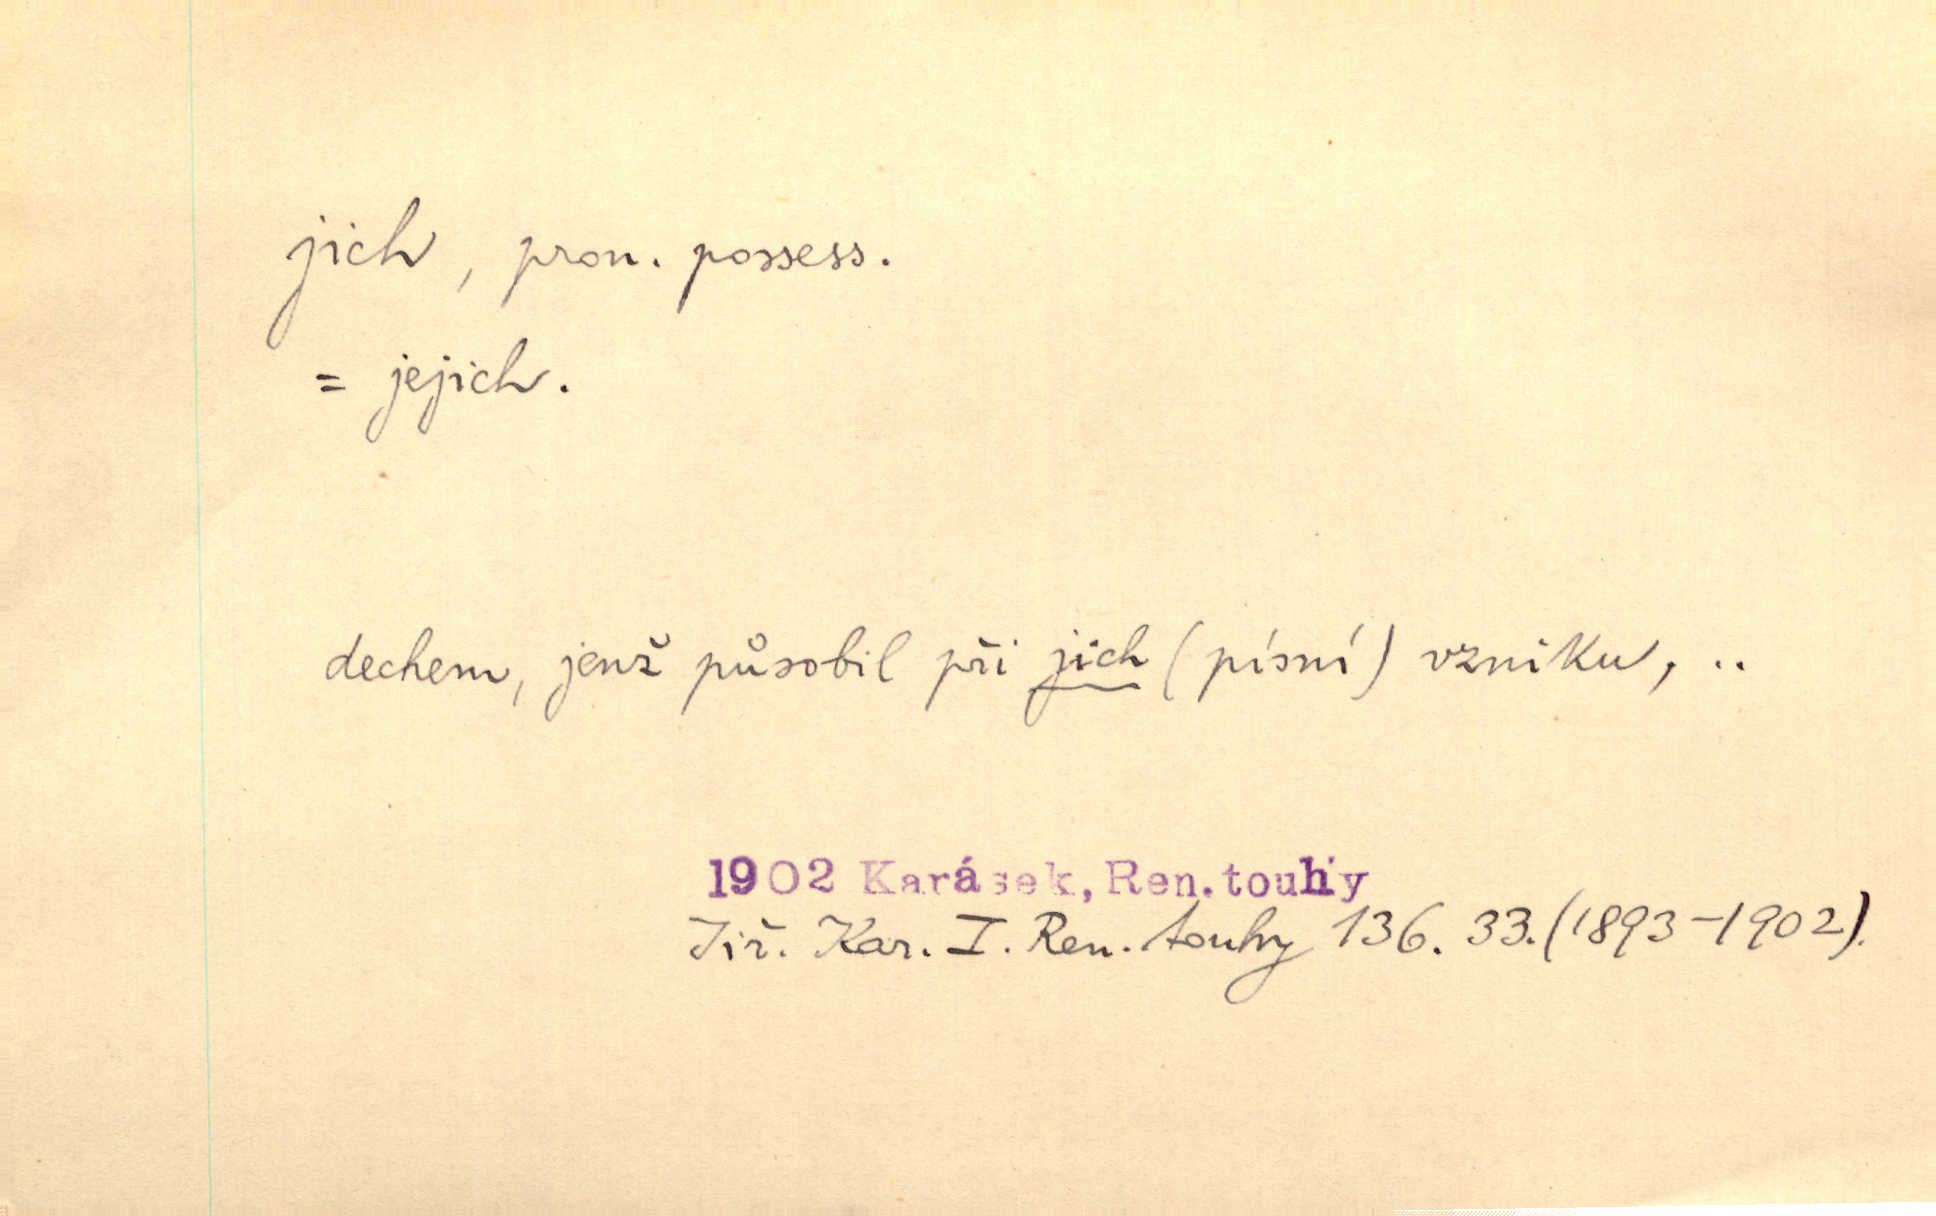 jich, pron. possess.
= jejich.
dechem, jenž působil při jich (písní) vzniku, ..
1902 Karásek, Ren. touhy
Jiř. Kar. I. Ren. touhy 136. 33. (1893-1902).